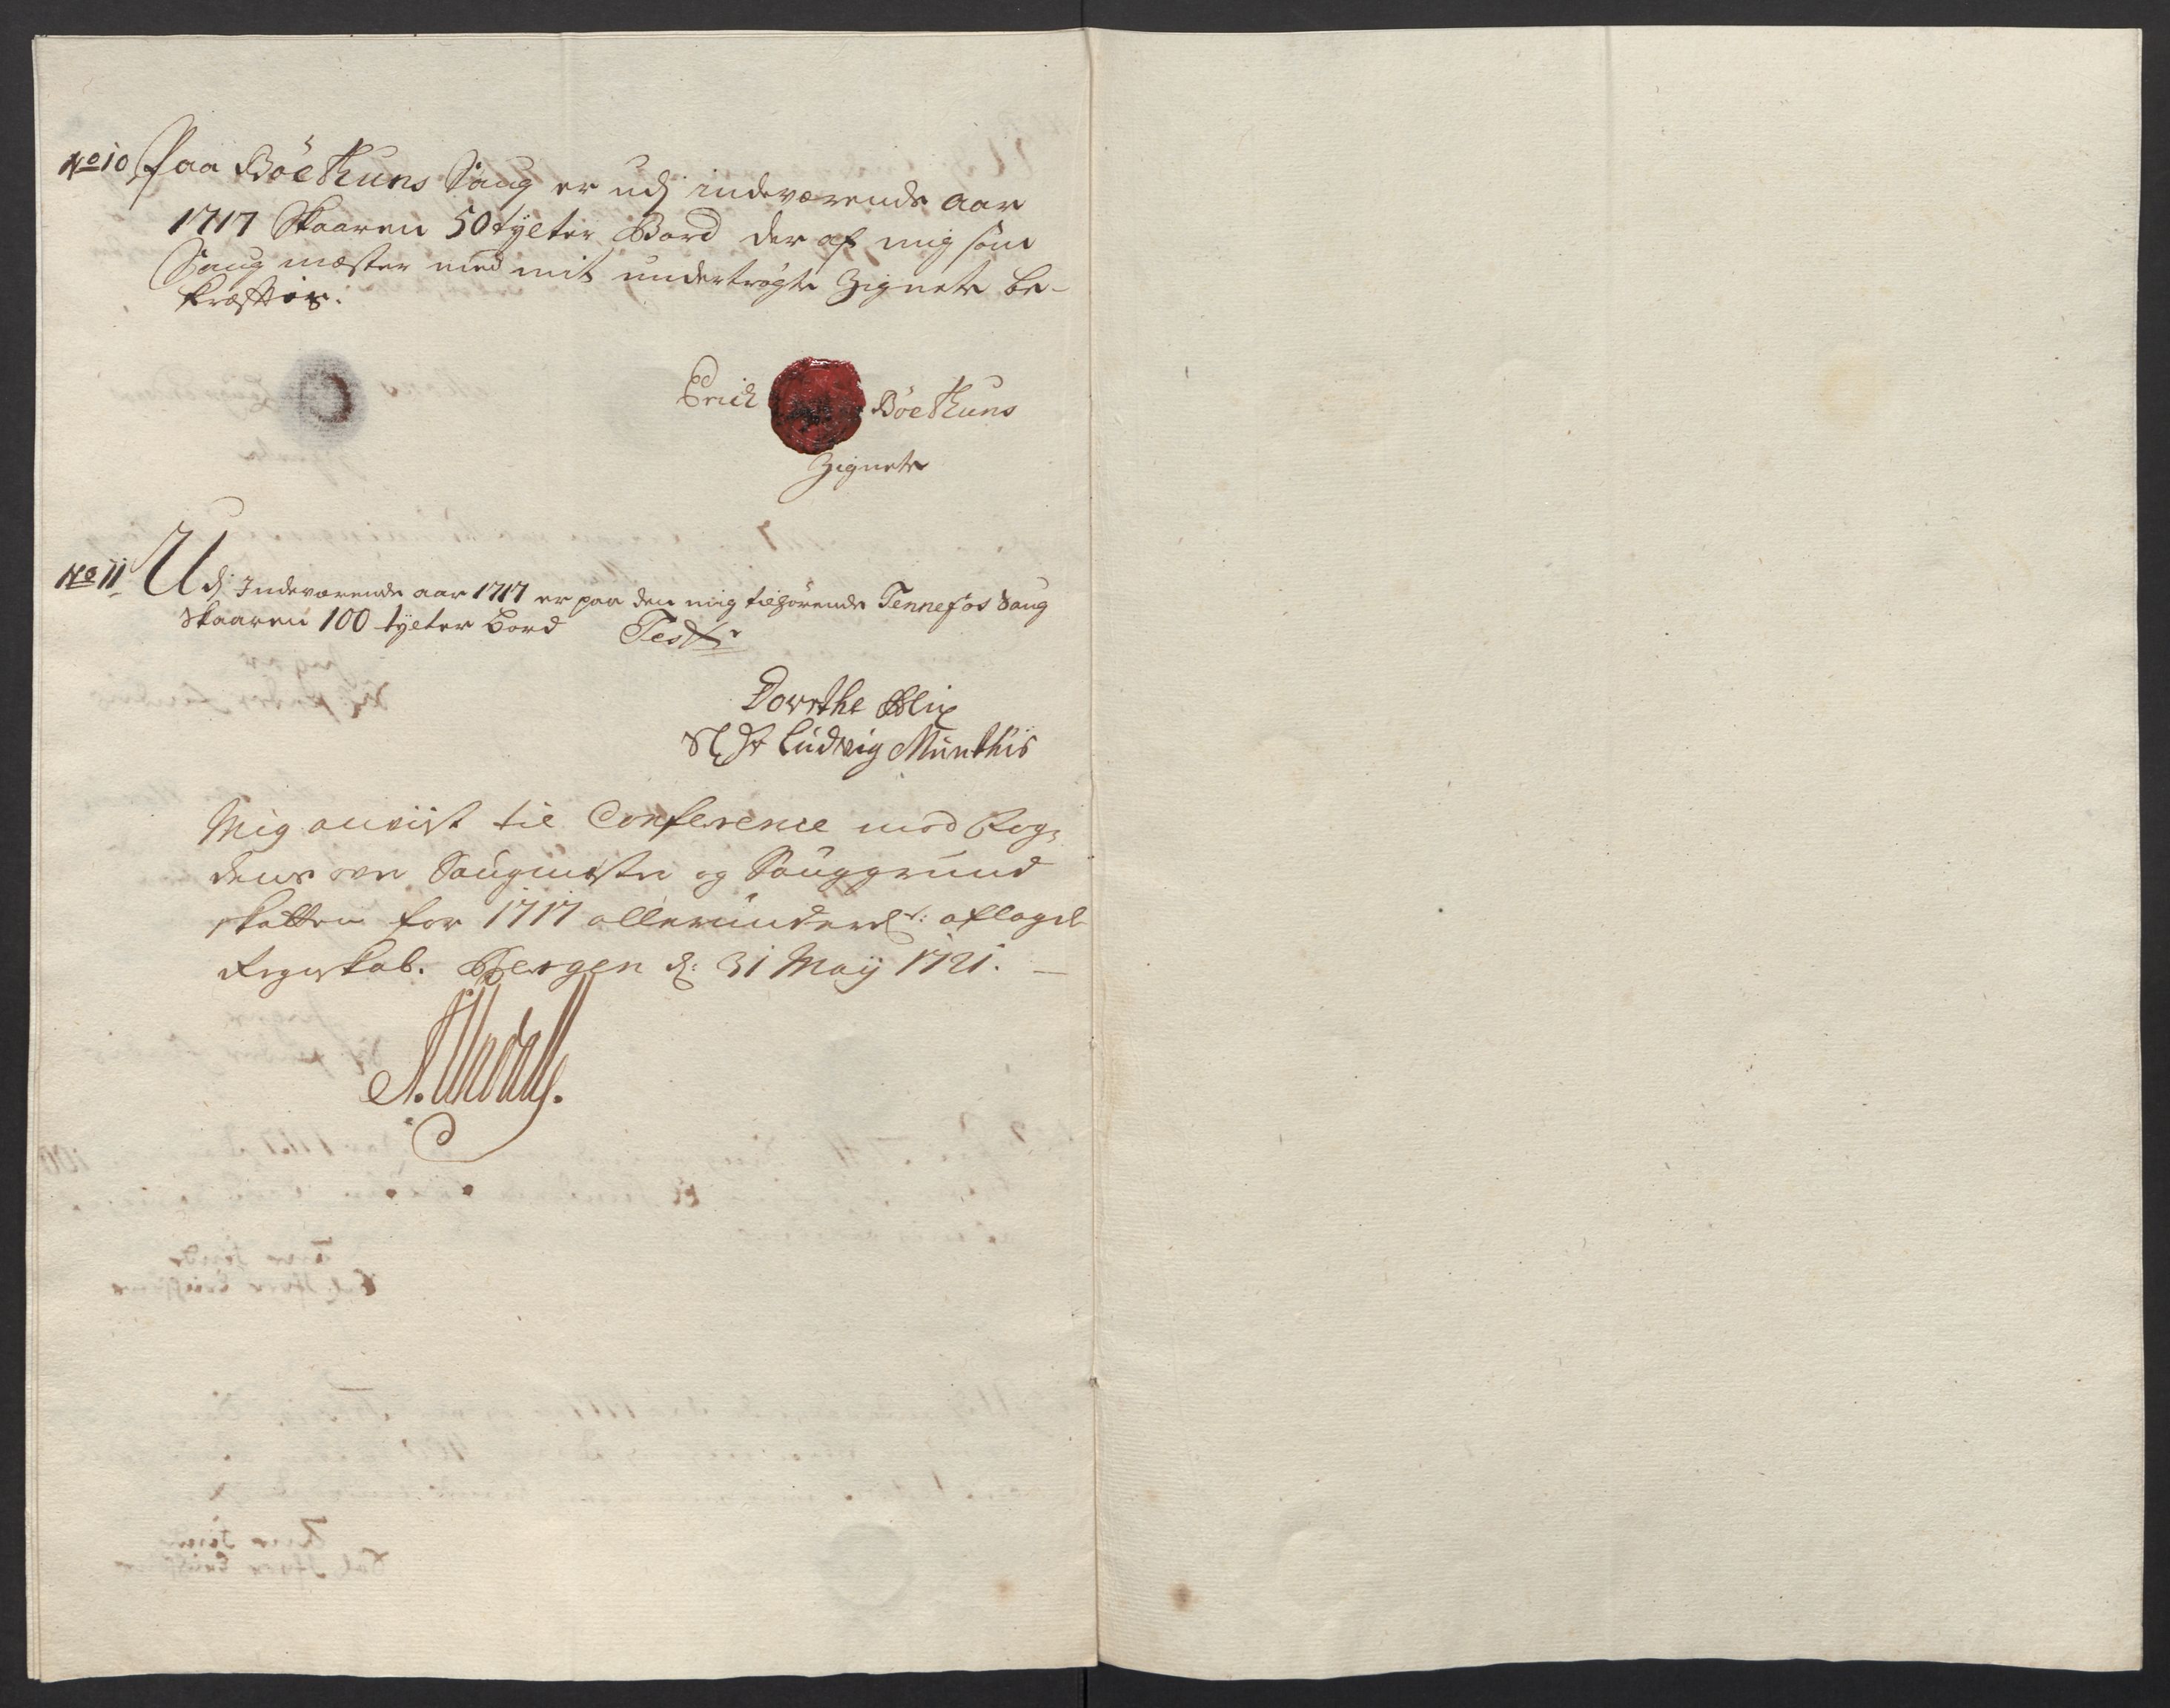 No 10 Paa Böethuns Saug er udj indeværende aar
1717 Skaaren 50 tylter Bord der af mig som
Saug mæster med mit undertrøgte Zignete be-
kræfftis.
Erich Böethuns
Zignete
No 11 Udj Indeværende aar 1717 er paa den mig tilhörende Tennefos Saug
Skaaren 100 tylter bord Test
Dorethe Blix
Sl Hr Ludvig Munthis
Mig anviist til Conference mod Fog-
dens over Saugmester og Sauggrund
skatten for 1717 allerunderd: aflagde
Regnskab. Bergen d: 31 Maij 1721.